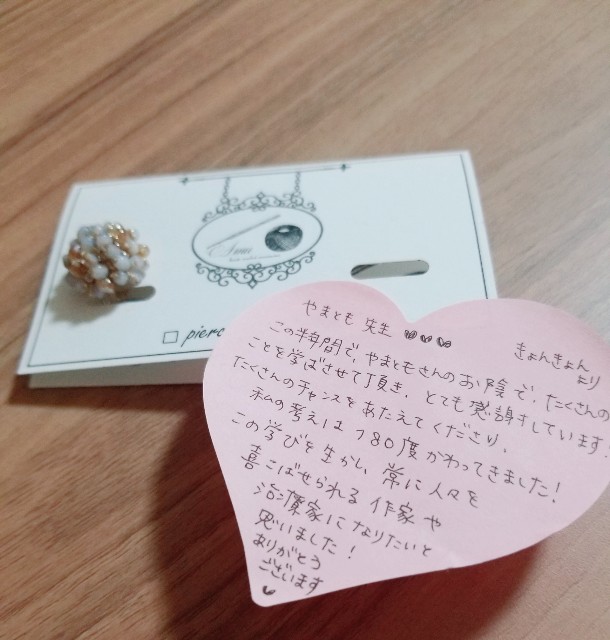 pierc
やまとも 先生
きょんきょん
より
この半年間で、やまともさんのお陰で、たくさんの
ことを学ばさせて頂き、とても感謝しています!
たくさんのチャンスをあたえてくださり、
私の考えは180度かわってきました!
この学びを生かし、常に人々を
喜こばせられる 作家や
治療家になりたいと
思いました!
ありがとう
ございます